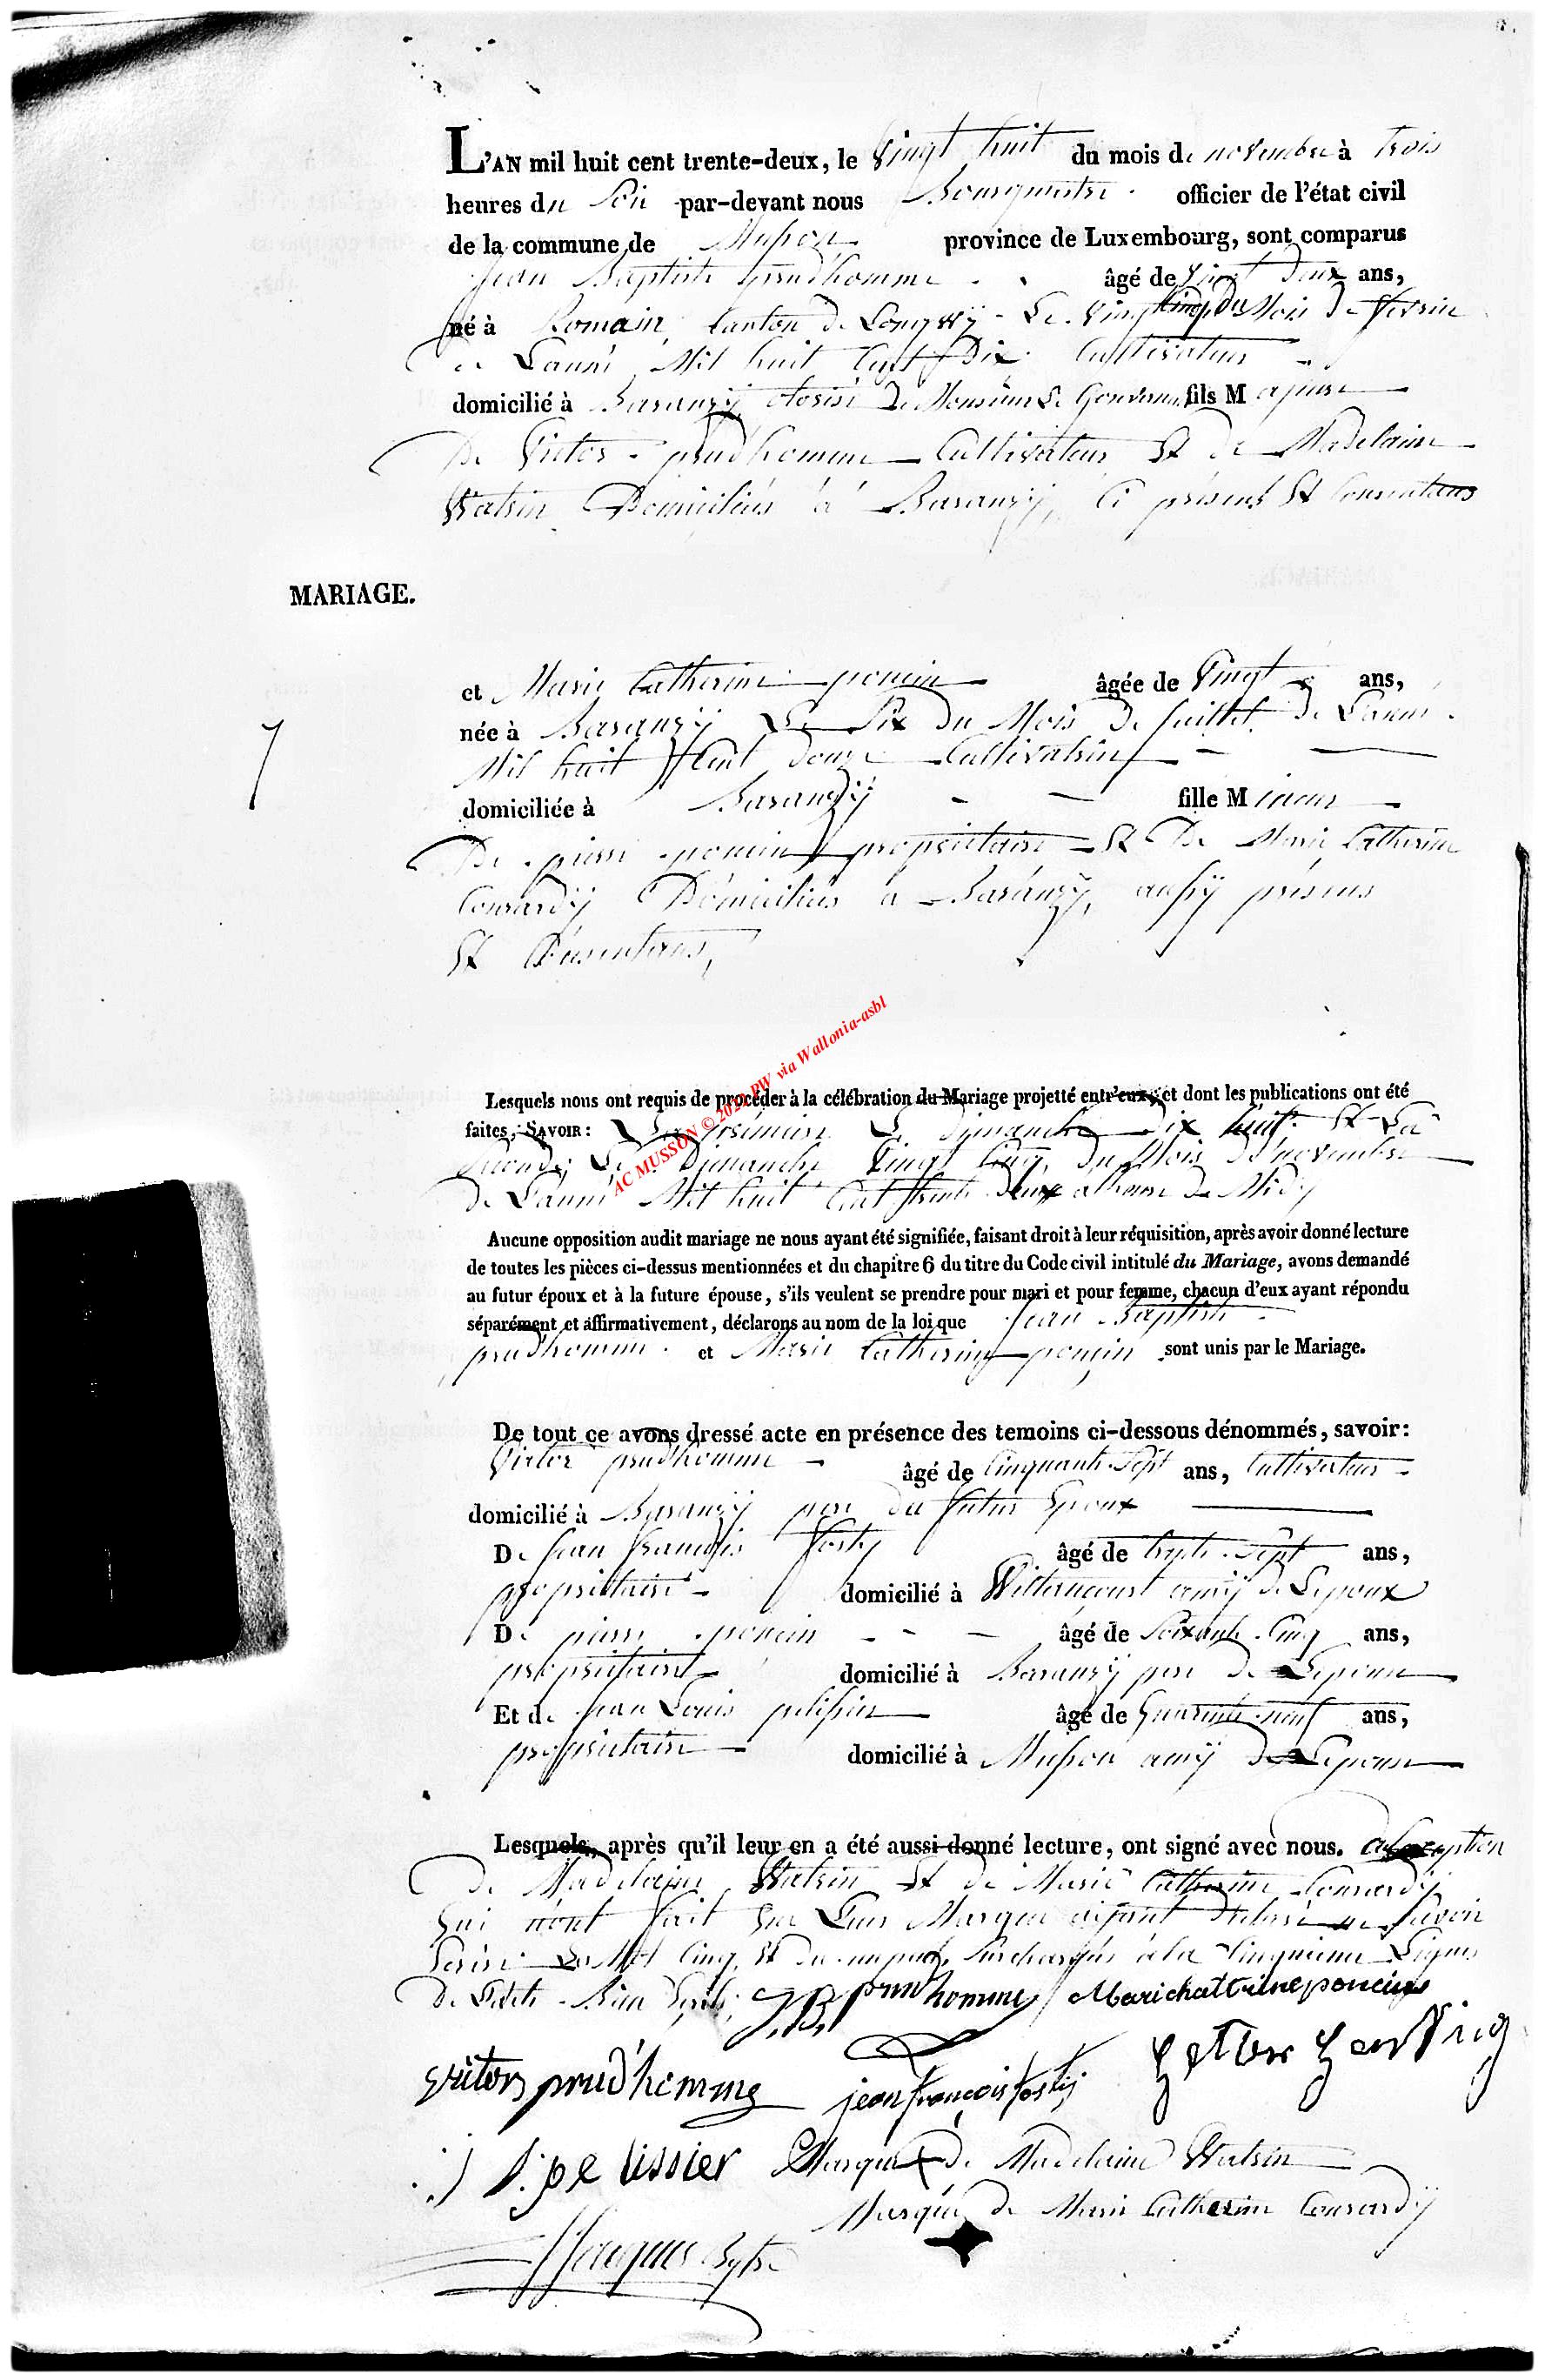 L'AN mil huit cent trente-deux, le vingt huit du mois de novembre à trois
heures du soir par-devant nous Bourgmestre officier de l'état civil
de la commune de Musson province de Luxembourg, sont comparus
Jean Baptiste prudhomme âgé de vingt deux ans,
né à Romain, Canton de Longwÿ Le vingt Cinq du Mois De fevrier
de L'année Mil huit Cent Dix Cultivateur
domicilié à Baranzÿ, De Monsieur Le Gouverneur fils Majeur
De Victor prudhomme Cultivateur Et de Madelaine
Watrin Domiciliés à Baranzÿ, Ci présens Et Consentans
MARIAGE.
et Marie Catherine poncin âgée de vingt ans,
née à Baranzÿ Le Six du Mois De Juillet De L'année
Mil huit Cent douze Cultivatrice
domiciliée à Baranzÿ fille Mineur
De pierre poncin propriétaire Et De Marie Catherine
Conrardÿ Domiciliés a Baranzÿ, aussÿ présens
Et Consentans,
AC MUSSON © 2022 PW via Wallonia-asbl
Lesquels nous ont requis de procéder à la célébration du Mariage projetté entr'eux, et dont les publications ont été
faites, SAVOIR: La première Le dimanche dix huit Et La
Seconde, Le Dimanche Vingt Cinq, du Mois de novembre
de L'année Mil huit Cent trente deux a l'heure de Midÿ
Aucune opposition audit mariage ne nous ayant été signifiée, faisant droit à leur réquisition, après avoir donné lecture
de toutes les pièces ci-dessus mentionnées et du chapitre 6 du titre du Code civil intitulé du Mariage, avons demandé
au futur époux et à la future épouse, s'ils veulent se prendre pour mari et pour femme, chacun d'eux ayant répondu
séparément et affirmativement, déclarons au nom de la loi que Jean Baptiste
prudhomme et Marie Catherine poncin sont unis par le Mariage.
De tout ce avons dressé acte en présence des temoins ci-dessous dénommés, savoir:
Victor prudhomme âgé de Cinquante Sept ans, Cultivateur
domicilié à Baranzÿ pere du futur Epoux
De Jean françois âgé de trente Sept ans,
propriétaire domicilié à Willancourt amÿ de L'epoux
De pierre poncin âgé de Soixante Cinq ans,
propriétaire domicilié à Baranzÿ pere de L'epouse
Et de Jean Louis pelissier âgé de Quarante neuf ans,
propriétaire domicilié à Musson amÿ de L'epouse
Lesquels, après qu'il leur en a été aussi donné lecture, ont signé avec nous. a l'exception
de Madelaine Watrin Et de Marie Catherine Conrardÿ
qui n'ont fait que Leurs Marque aÿant déclaré ne Savoir
Ecrire Le Mot Cinq, Et du un peu Surchargés à la Cinquième Lignes
De
J B prudhomme Marichattrine poncin
victor prudhomme jean françois
J l pelissier Marque de Madelaine Watrin
Marque de Marie Catherine Conrardÿ